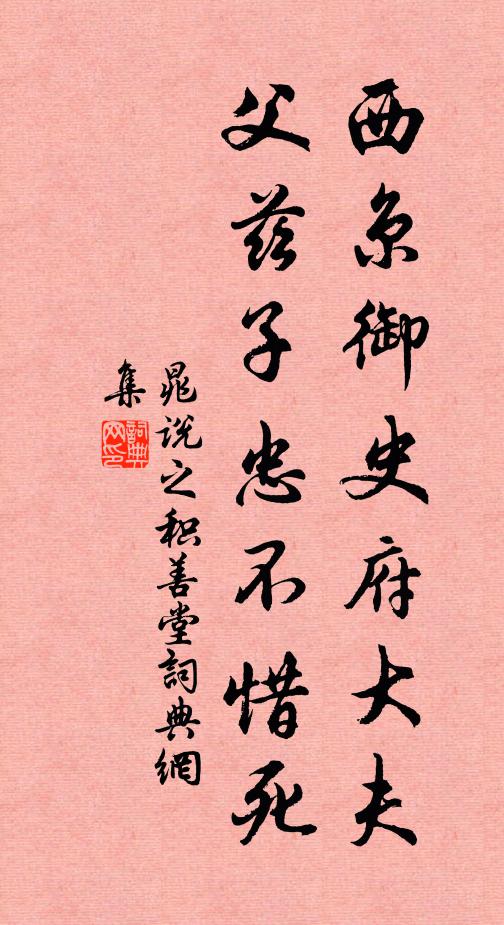 西京御史府大夫
父兹子忠不惜死
晁说之积善堂詞典網
集
詞典网印